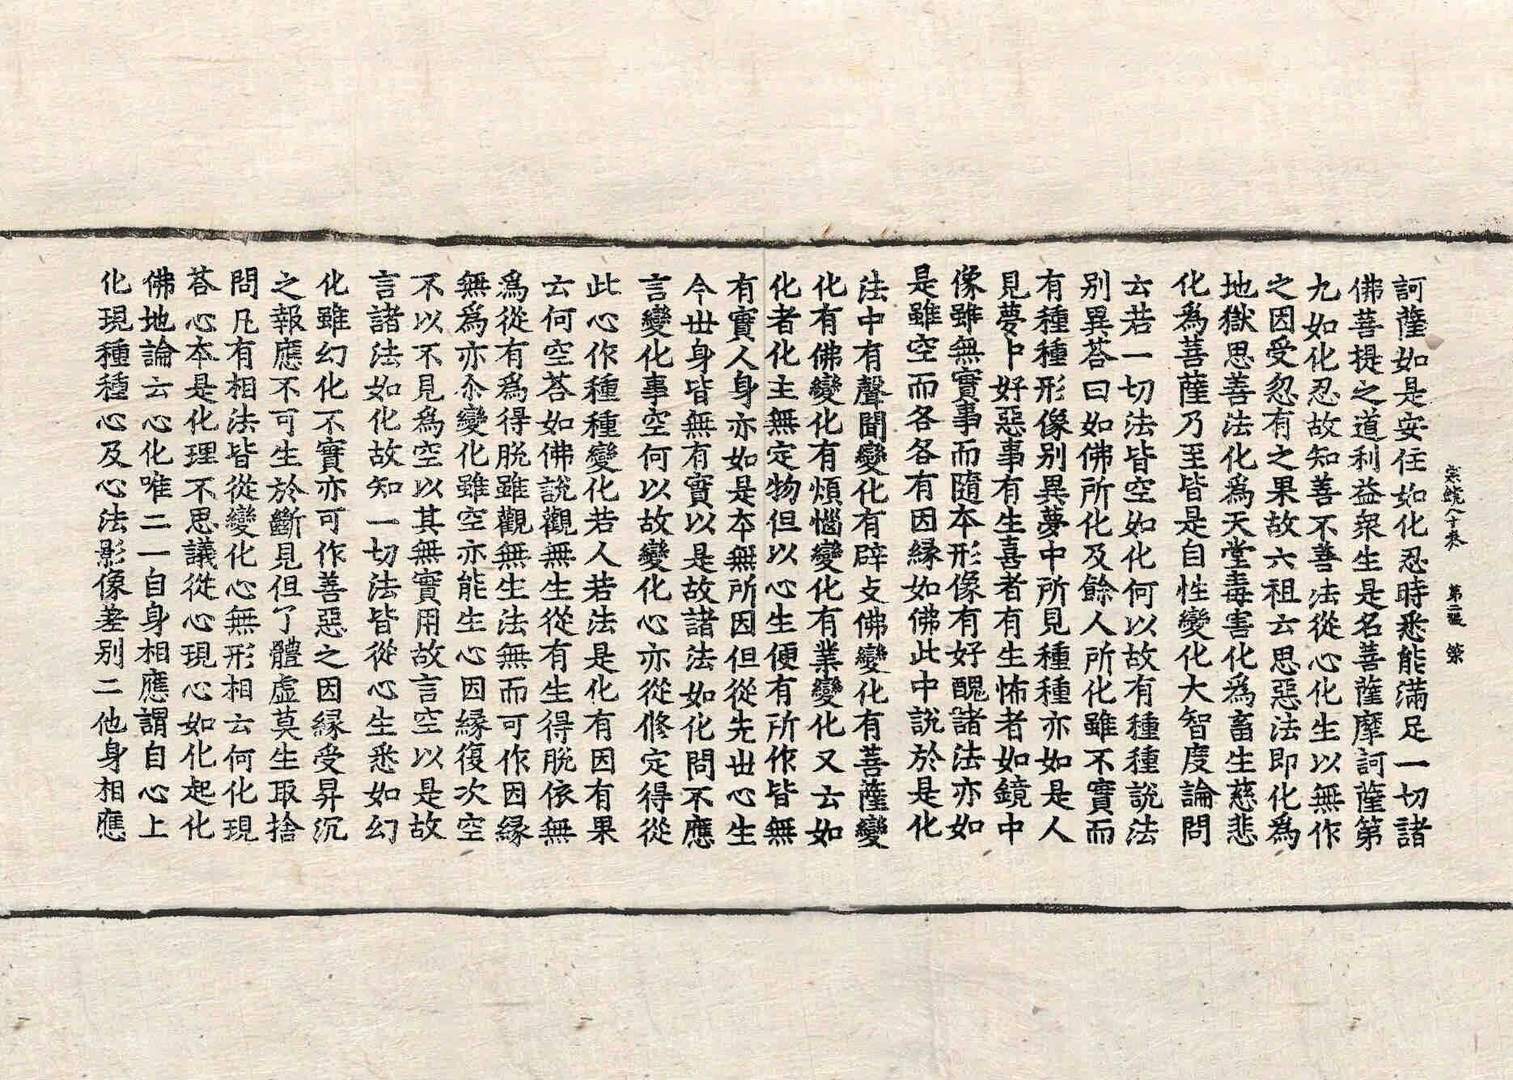 宗鏡八十卷 第二張 策
訶薩如是安住如化忍時悉能滿足一切諸
佛菩提之道利益衆生是名菩薩摩訶薩第
九如化忍故知善不善法從心化生以無作
之因受忽有之果故六祖云思惡法即化爲
地獄思善法化爲天堂毒害化爲畜生慈悲
化爲菩薩乃至皆是自性變化大智度論問
云若一切法皆空如化何以故有種種說法
別異荅曰如佛所化及餘人所化雖不實而
有種種形像別異夢中所見種種亦如是人
見夢中好惡事有生喜者有生怖者如鏡中
像雖無實事而隨本形像有好醜諸法亦如
是雖空而各各有因緣如佛此中說於是化
法中有聲聞變化有辟支佛變化有菩薩變
化有佛變化有煩惱變化有業變化又云如
化者化主無定物但以心生便有所作皆無
有實人身亦如是本無所因但從先世心生
今世身皆無有實以是故諸法如化問不應
言變化事空何以故變化心亦從修定得從
此心作種種變化若人若法是化有因有果
云何空荅如佛說觀無生從有生得脫依無
爲從有爲得脫雖觀無生法無而可作因緣
無爲亦尒變化雖空亦能生心因緣復次空
不以不見爲空以其無實用故言空以是故
言諸法如化故知一切法皆從心生悉如幻
化雖幻化不實亦可作善惡之因緣受昇沉
之報應不可生於斷見但了體虛莫生取捨
問凡有相法皆從變化心無形相云何化現
荅心本是化理不思議從心現心如化起化
佛地論云心化唯二一自身相應謂自心上
化現種種心及心法影像差別二他身相應